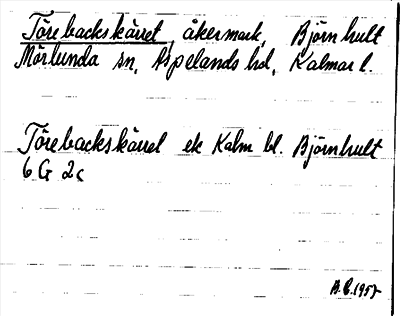 Törebackskärret, åkermark, Björnhult
Mörlunda sn, Aspelands hd, Kalmar l.
Törebackskärret ek Kalm bl. Björnhult
6 G 2c
B.E. 1957